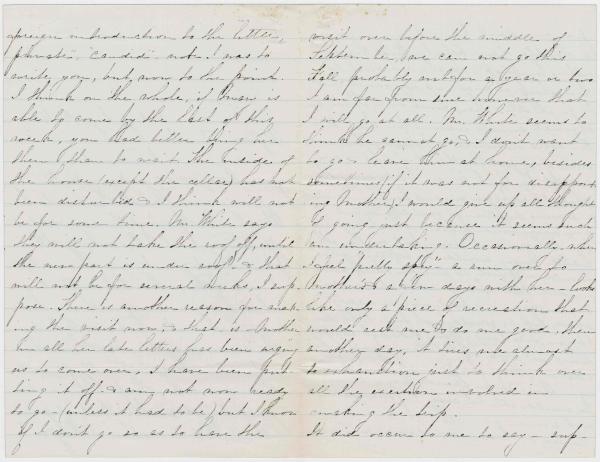 foreign introduction to the little,
private, "candid" note I was to
write you, but, now to the point.
I think on the whole, if Susan is
able to come by the last of this
week, you had better bring her
then, than to wait. The inside of
the house (except the cellar) has not
been disturbed & I think will not
be for some time. Mr White says
they will not take the roof off, until
the new part is under roof - & that
will not be for several weeks, I sup
pose. There is another reason for mak
ing the visit now, & that is - Mother
in all her late letters has been urging
us to come over, I have been put
ting it off - & am not now ready
to go - (unless it had to be) but I know
if I don't go so as to have the
visit over before the middle of
September, we can not go this
Fall probably not for a year or two
I am far from sure however that
I will go at all. Mr. White seems to
think he cannot go, & I don't want
to go & leave him at home, besides
sometimes (if it was not for disappoint
ing Mother) I would give up all thought
of going just because it seems such
an undertaking. Occasionally, when
I feel "pretty spry" - a run over to
Mother's & a few days with her - looks
like only a piece of recreation that
would rest me & do me good, then
another day, it tires me almost
to exhaustion just to think over
all the exertion involved in
making the trip.
It did occur to me to say - sup-